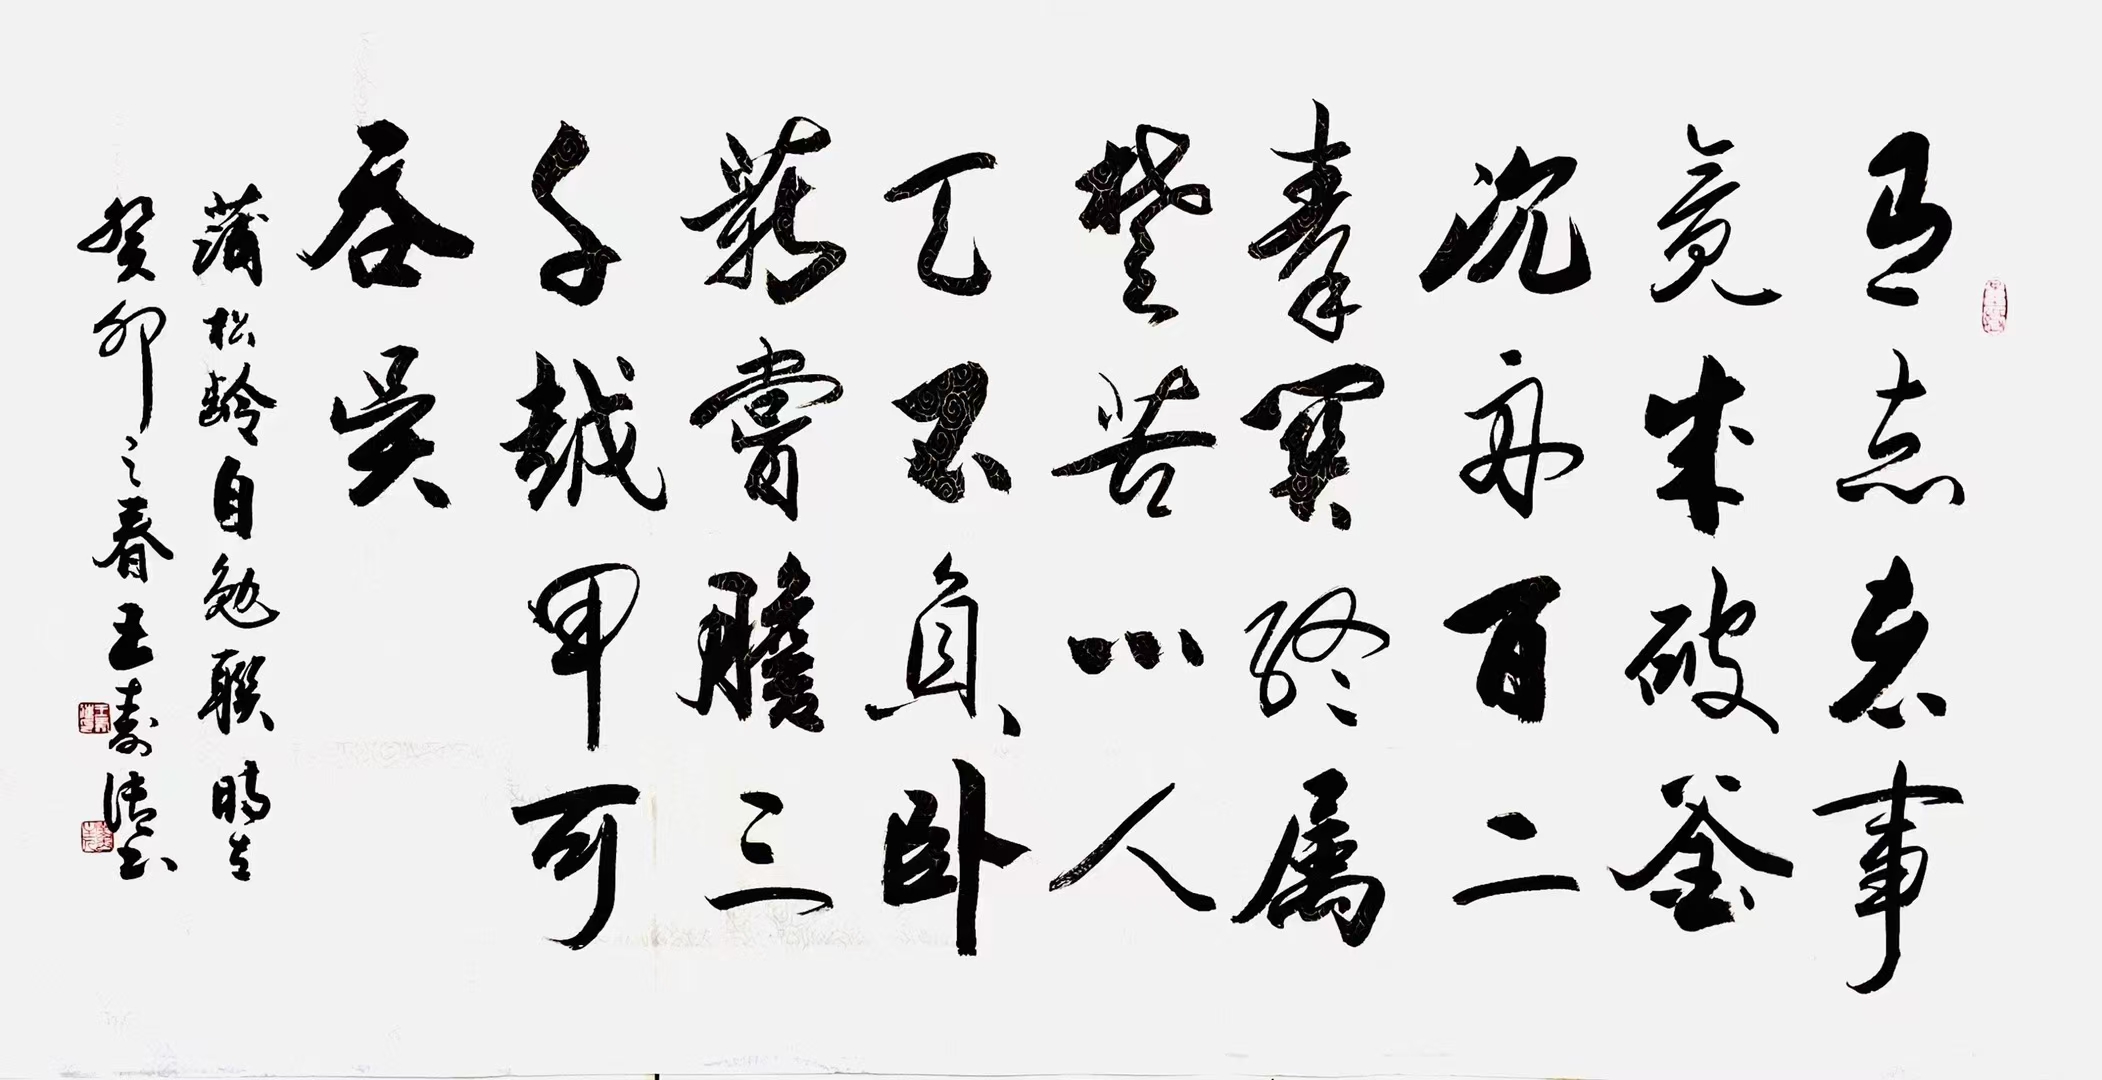 有志者事
竟成破釜
沉舟百二
秦関终属
楚苦心人
天不負卧
薪嘗膽三
千越甲可
吞吴
蒲松龄自勉联時在
癸卯之春王寿清书